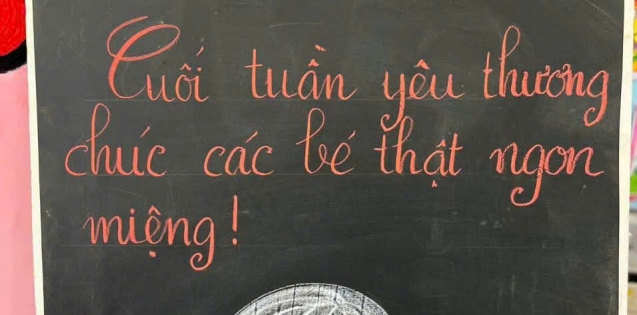 Cuối tuần yêu thương
chúc các bé thật ngon
miệng!